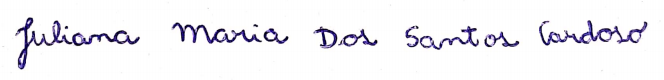 Juliana Maria Dos Santos Cardoso